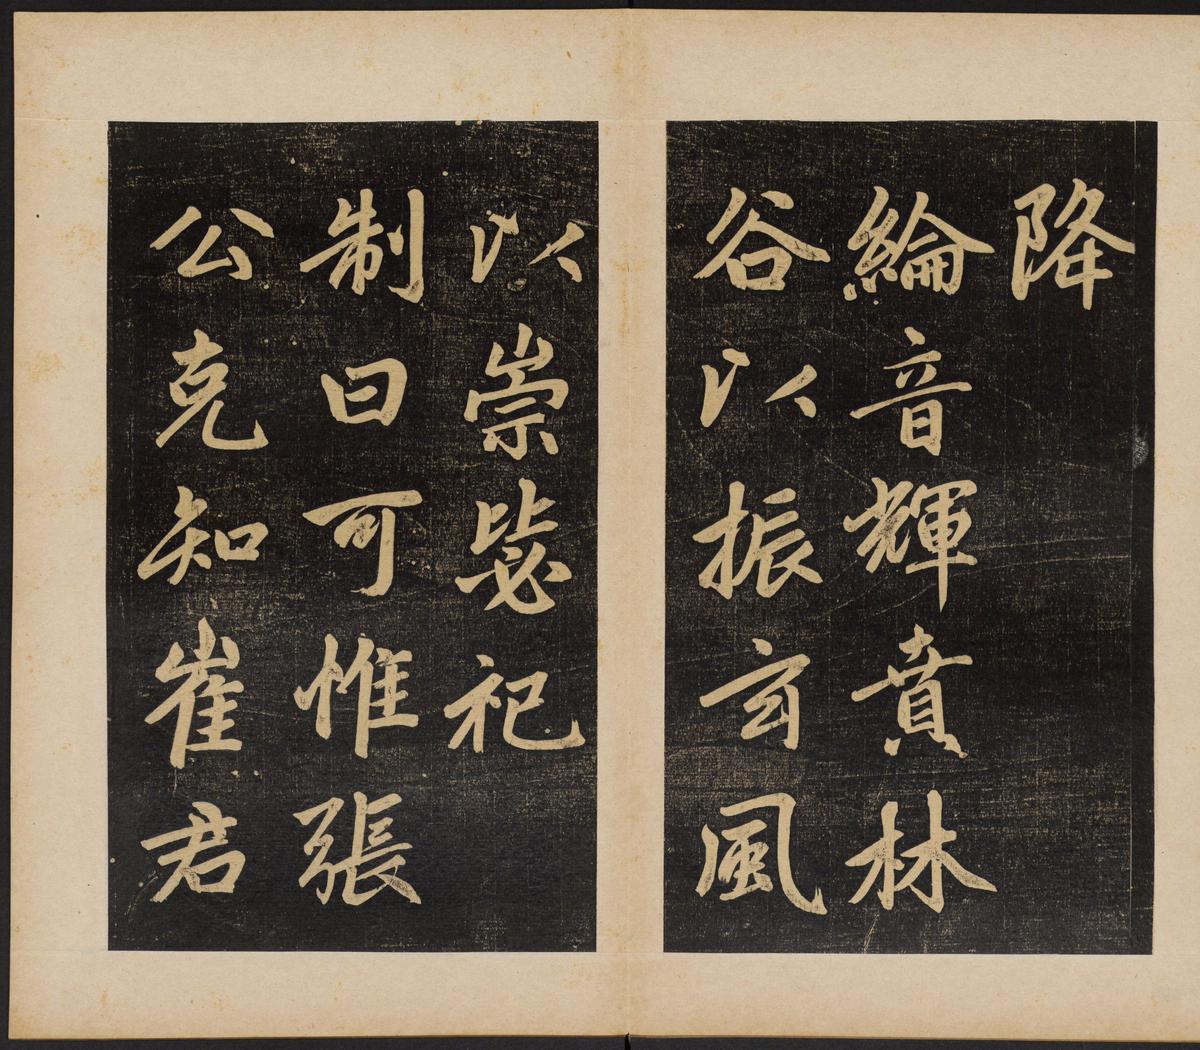 降
綸音輝賁林
谷以振玄風
以崇毖祀
制曰可惟張
公克知崔君